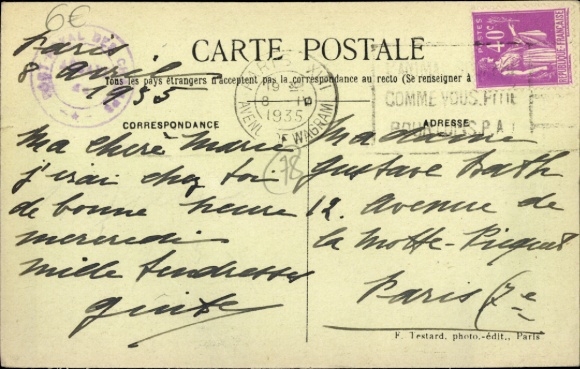 6€
Paris
8 avril
1935
CARTE POSTALE
Tous les pays étrangers n'acceptent pas la correspondance au recto (Se renseigner à
CORRESPONDANCE
ADRESSE
40c
POSTES
REPUBLIQUE FRANÇAISE
PARIS XVII
19
8
1935
AVENUE DE WAGRAM
COMME VOUS. PITIE
POUR S.P.A.
Ma chère Marie
j'irai chez toi
de bonne heure
mercredi
mille tendresses
78
Madame
Gustave
12. Avenue de
la Motte-Picquet
Paris (7e
F. Testard, photo.-édit., Paris